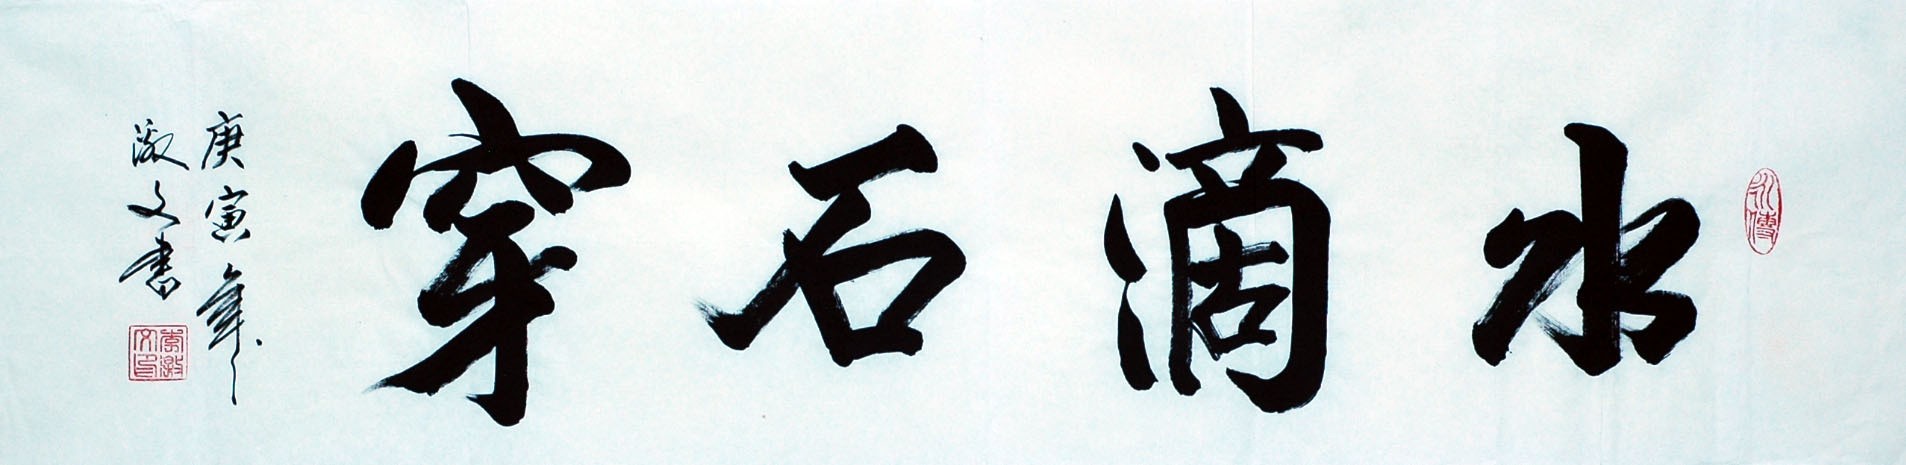 水滴石穿
庚寅年
激文書